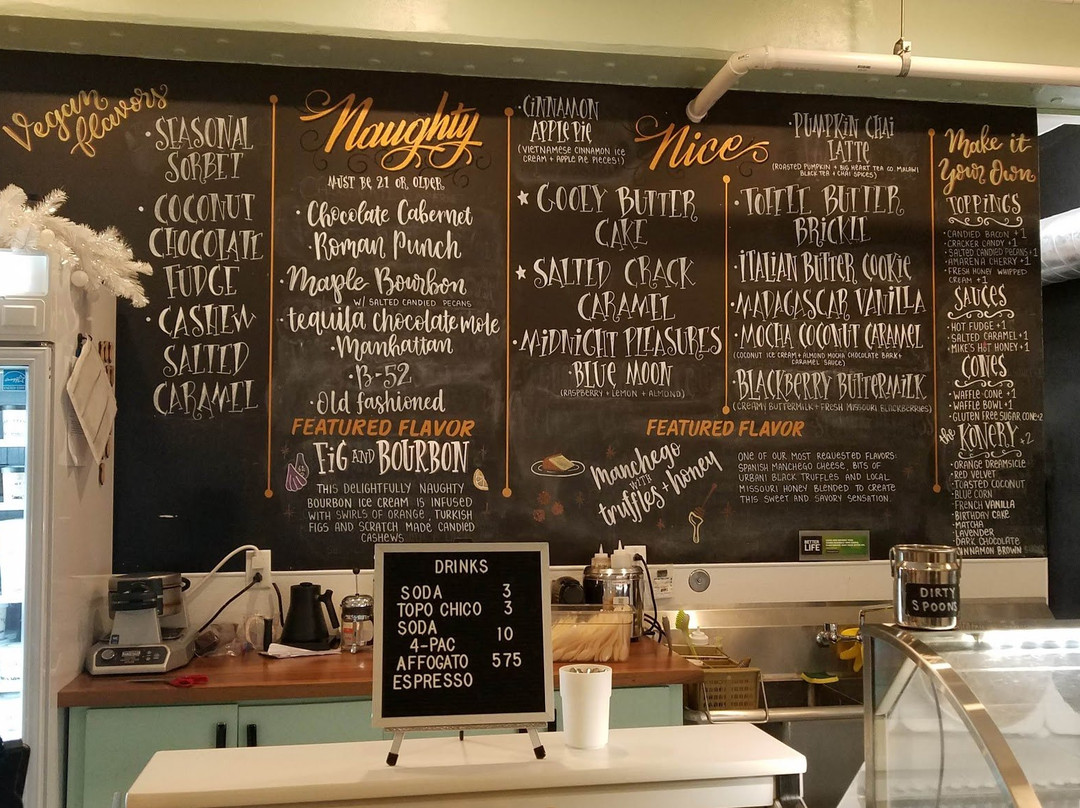 Vegan
flavors
• SEASONAL
SORBET
• COCONUT
CHOCOLATE
FUDGE
• CASHEW
SALTED
CARAMEL
Naughty
MUST BE 21 OR OLDER
• Chocolate Cabernet
• Roman Punch
• Maple Bourbon
W/ SALTED CANDIED PECANS
• tequila chocolate mole
• Manhattan
• B-52
• Old fashioned
FEATURED FLAVOR
FIG AND BOURBON
THIS DELIGHTFULLY NAUGHTY
BOURBON ICE CREAM IS INFUSED
WITH SWIRLS OF ORANGE, TURKISH
FIGS AND SCRATCH MADE CANDIED
CASHEWS
Nice
• CINNAMON
APPLE PIE
(VIETNAMESE CINNAMON ICE
CREAM + APPLE PIE PIECES!)
GOOEY BUTTER
CAKE
SALTED CRACK
CARAMEL
• MIDNIGHT PLEASURES
• BLUE MOON
(RASPBERRY + LEMON + ALMOND)
• PUMPKIN CHAI
LATTE
(ROASTED PUMPKIN + BIG HEART TEA CO. MALAWI
BLACK TEA + CHAI SPICES)
• TOFFEE BUTTER
BRICKLE
• ITALIAN BUTTER COOKIE
• MADAGASCAR VANILLA
• MOCHA COCONUT CARAMEL
(COCONUT ICE CREAM + ALMOND MOCHA CHOCOLATE BARK +
CARAMEL SAUCE)
• BLACKBERRY BUTTERMILK
(CREAMY BUTTERMILK + FRESH MISSOURI BLACKBERRIES)
FEATURED FLAVOR
Manchego
WITH
truffles + honey
ONE OF OUR MOST REQUESTED FLAVORS:
SPANISH MANCHEGO CHEESE, BITS OF
URBANI BLACK TRUFFLES AND LOCAL
MISSOURI HONEY BLENDED TO CREATE
THIS SWEET AND SAVORY SENSATION.
Make it
Your Own
TOPPINGS
• CANDIED BACON +1
• CRACKER CANDY +1
• SALTED CANDIED PECANS +1
• AMARENA CHERRY +1
• FRESH HONEY WHIPPED
CREAM +1
SAUCES
• HOT FUDGE +1
• SALTED CARAMEL +1
• MIKE'S HOT HONEY +1
CONES
• WAFFLE CONE +1
• WAFFLE BOWL +1
• GLUTEN FREE SUGAR CONE +2
the KONERY +2
• ORANGE DREAMSICLE
• RED VELVET
• TOASTED COCONUT
• BLUE CORN
• FRENCH VANILLA
• BIRTHDAY CAKE
• MATCHA
• LAVENDER
• DARK CHOCOLATE
CINNAMON BROWN
BETTER
LIFE
DRINKS
SODA 3
TOPO CHICO 3
SODA 10
4-PAC
AFFOGATO 575
ESPRESSO
DIRTY
SPOONS